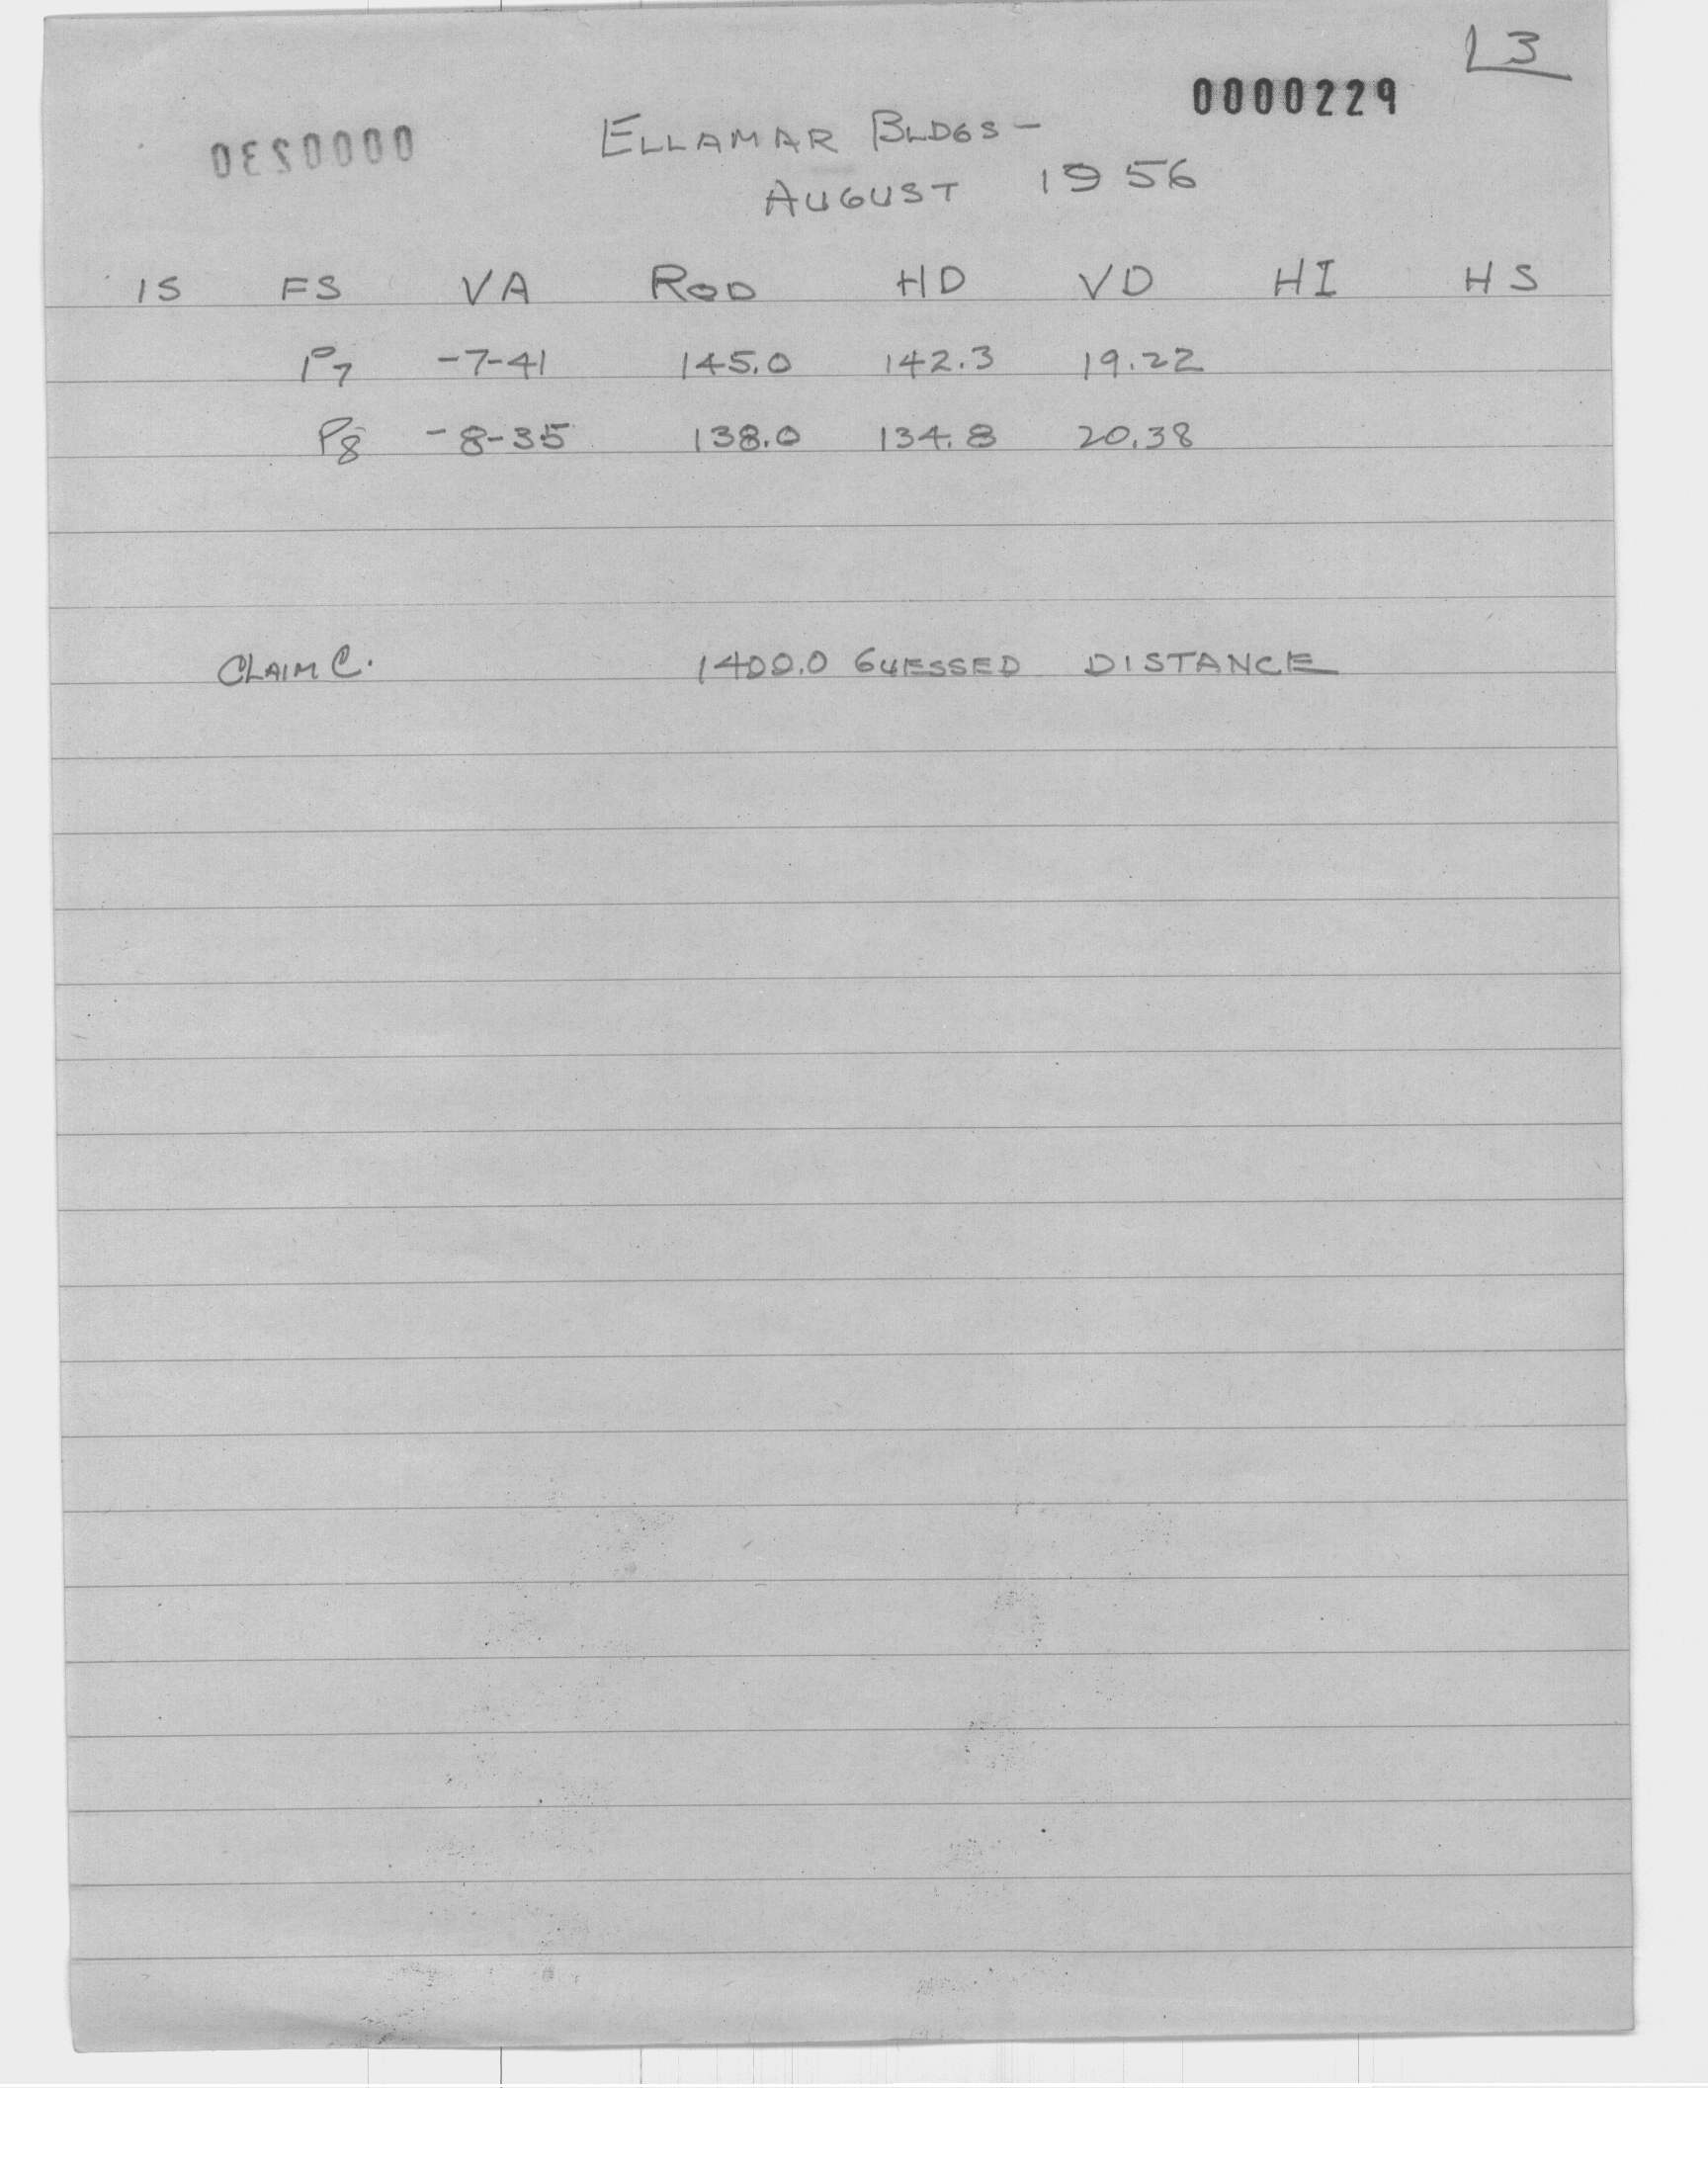 3
0000229
0000230
ELLAMAR BLDGS —
AUGUST 1956
IS FS VA ROD HD VD HI HS
P7 -7-41 145.0 142.3 19.22
P8 -8-35 138.0 134.8 20.38
CLAIM C. 1400.0 GUESSED DISTANCE